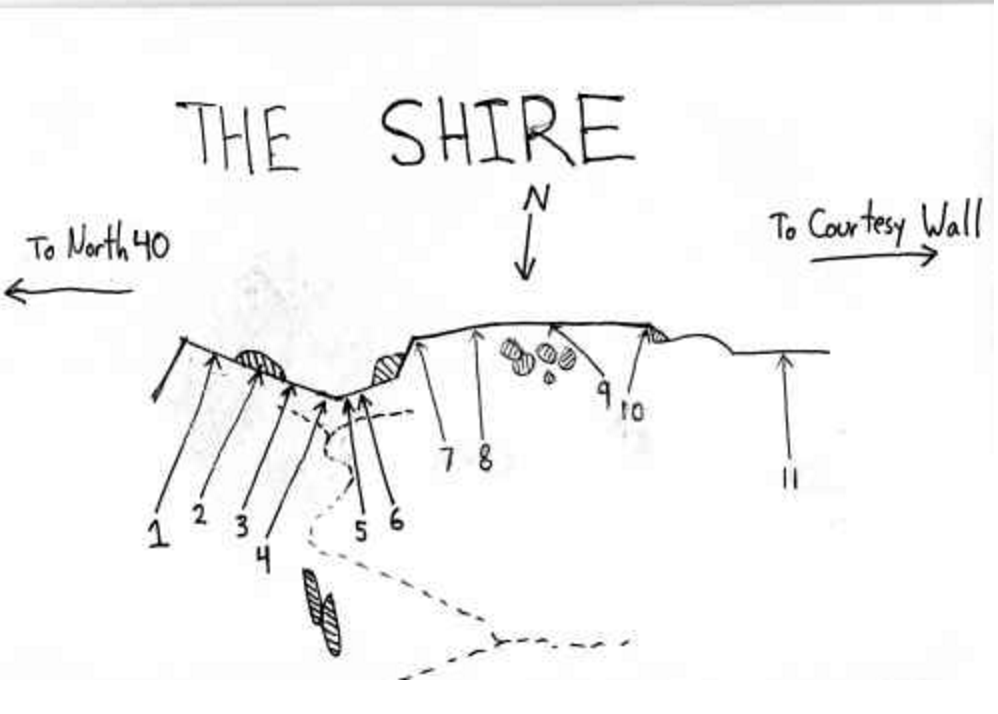 THE SHIRE
N
To North 40
To Courtesy Wall
1
2
3
4
5
6
7
8
9
10
11